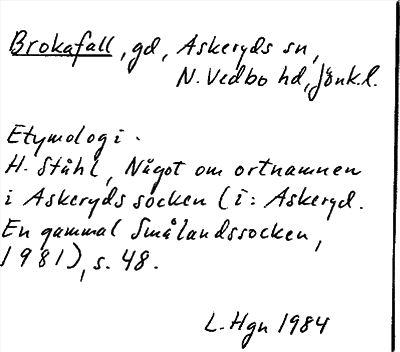 Brokafall, gd, Askeryds sn,
N. Vedbo hd, Jönk.l.
Etymologi.
H. Ståhl, Något om ortnamnen
i Askeryds socken (i: Askeryd.
En gammal Smålandssocken,
1981), s. 48.
L. Hgn 1984